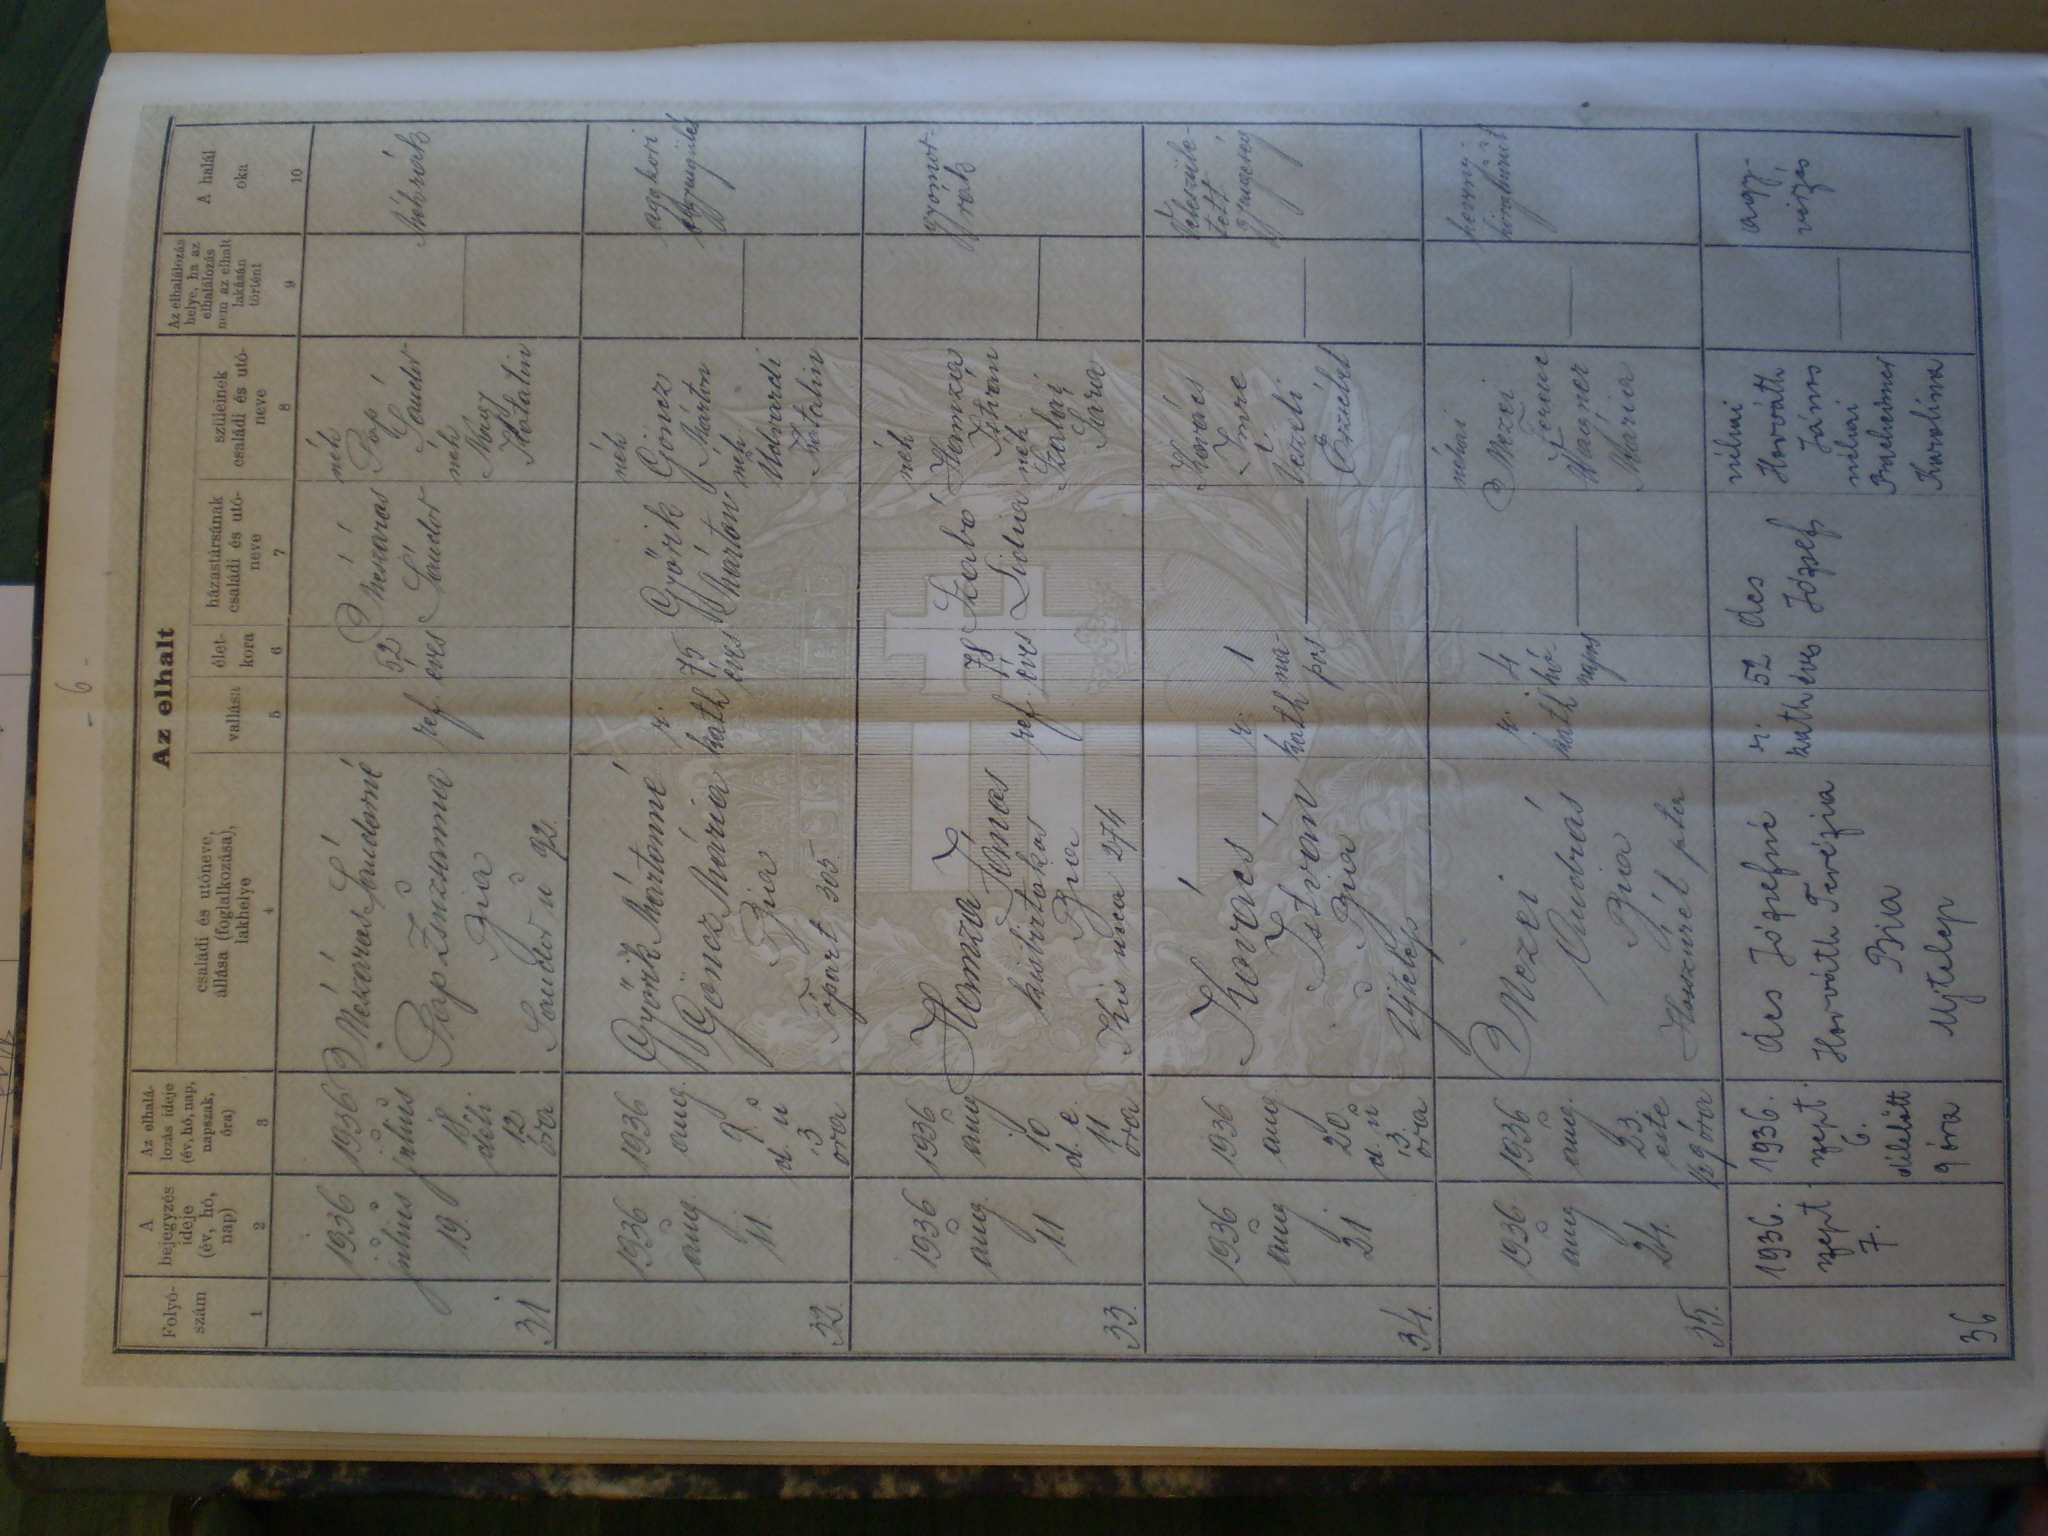 - 6 -
Az elhalt
Folyó-
szám
A
bejegyzés
ideje
(év, hó,
nap)
Az elhalá-
lozás ideje
(év, hó, nap,
napszak,
óra)
családi és utóneve,
állása (foglalkozása),
lakhelye
vallása
élet-
kora
házastársának
családi és utó-
neve
szüleinek
családi és utó-
neve
Az elhalálozás
helye, ha az
elhalálozás
nem az elhalt
lakásán
történt
A halál
oka
1
2
3
4
5
6
7
8
9
10
31
1936
julius
19.
1936
julius
18
déli
12
óra
Mészáros Sándorné
Pap Zsuzsanna
Bia
Sándor u 92.
ref.
52
éves
Mészáros
Sándor
néh
Pap
Sándor
néh
Nagy
Katalin
méhrák
32.
1936
aug.
11.
1936
aug.
9
d. u
3
óra
Györik Mártonné
Göncz Mária
Bia
Főpart 305
r.
kath
75
éves
Györik
Márton
néh
Göncz
Márton
néh
Udvardi
Katalin
aggkori
elgyengülés
33.
1936
aug.
11
1936
aug
10
d. e.
11
óra
Homza
János
kisbirtokos
Bia
Kis ucca 274
ref.
78
éves
Szabó
Lidia
néh
Homza
István
néh
Szalai
Sára
gyomor-
rák
34.
1936
aug
21
1936
aug
20.
d. u
3
óra
Kovács
István
Bia
Ujtelep
r.
kath
1
na-
pos
Kovács
Imre
Vezdi
Erzsébet
veleszüle-
tett
gyengeség
35.
1936
aug
24.
1936
aug.
23.
este
½ 9 óra
Mezei
András
Bia
r.
kath
4
hó-
napos
néhai
Mezei
Ferenc
Wágner
Mária
36
1936.
szept.
7.
1936.
szept.
6.
délelőtt
9 óra
Ács Józsefné
Horváth Terézia
Bia
Ujtelep
r.
kath
52
éves
Ács
József
néhai
Horváth
János
néhai
Karolina
agy-
vérzés